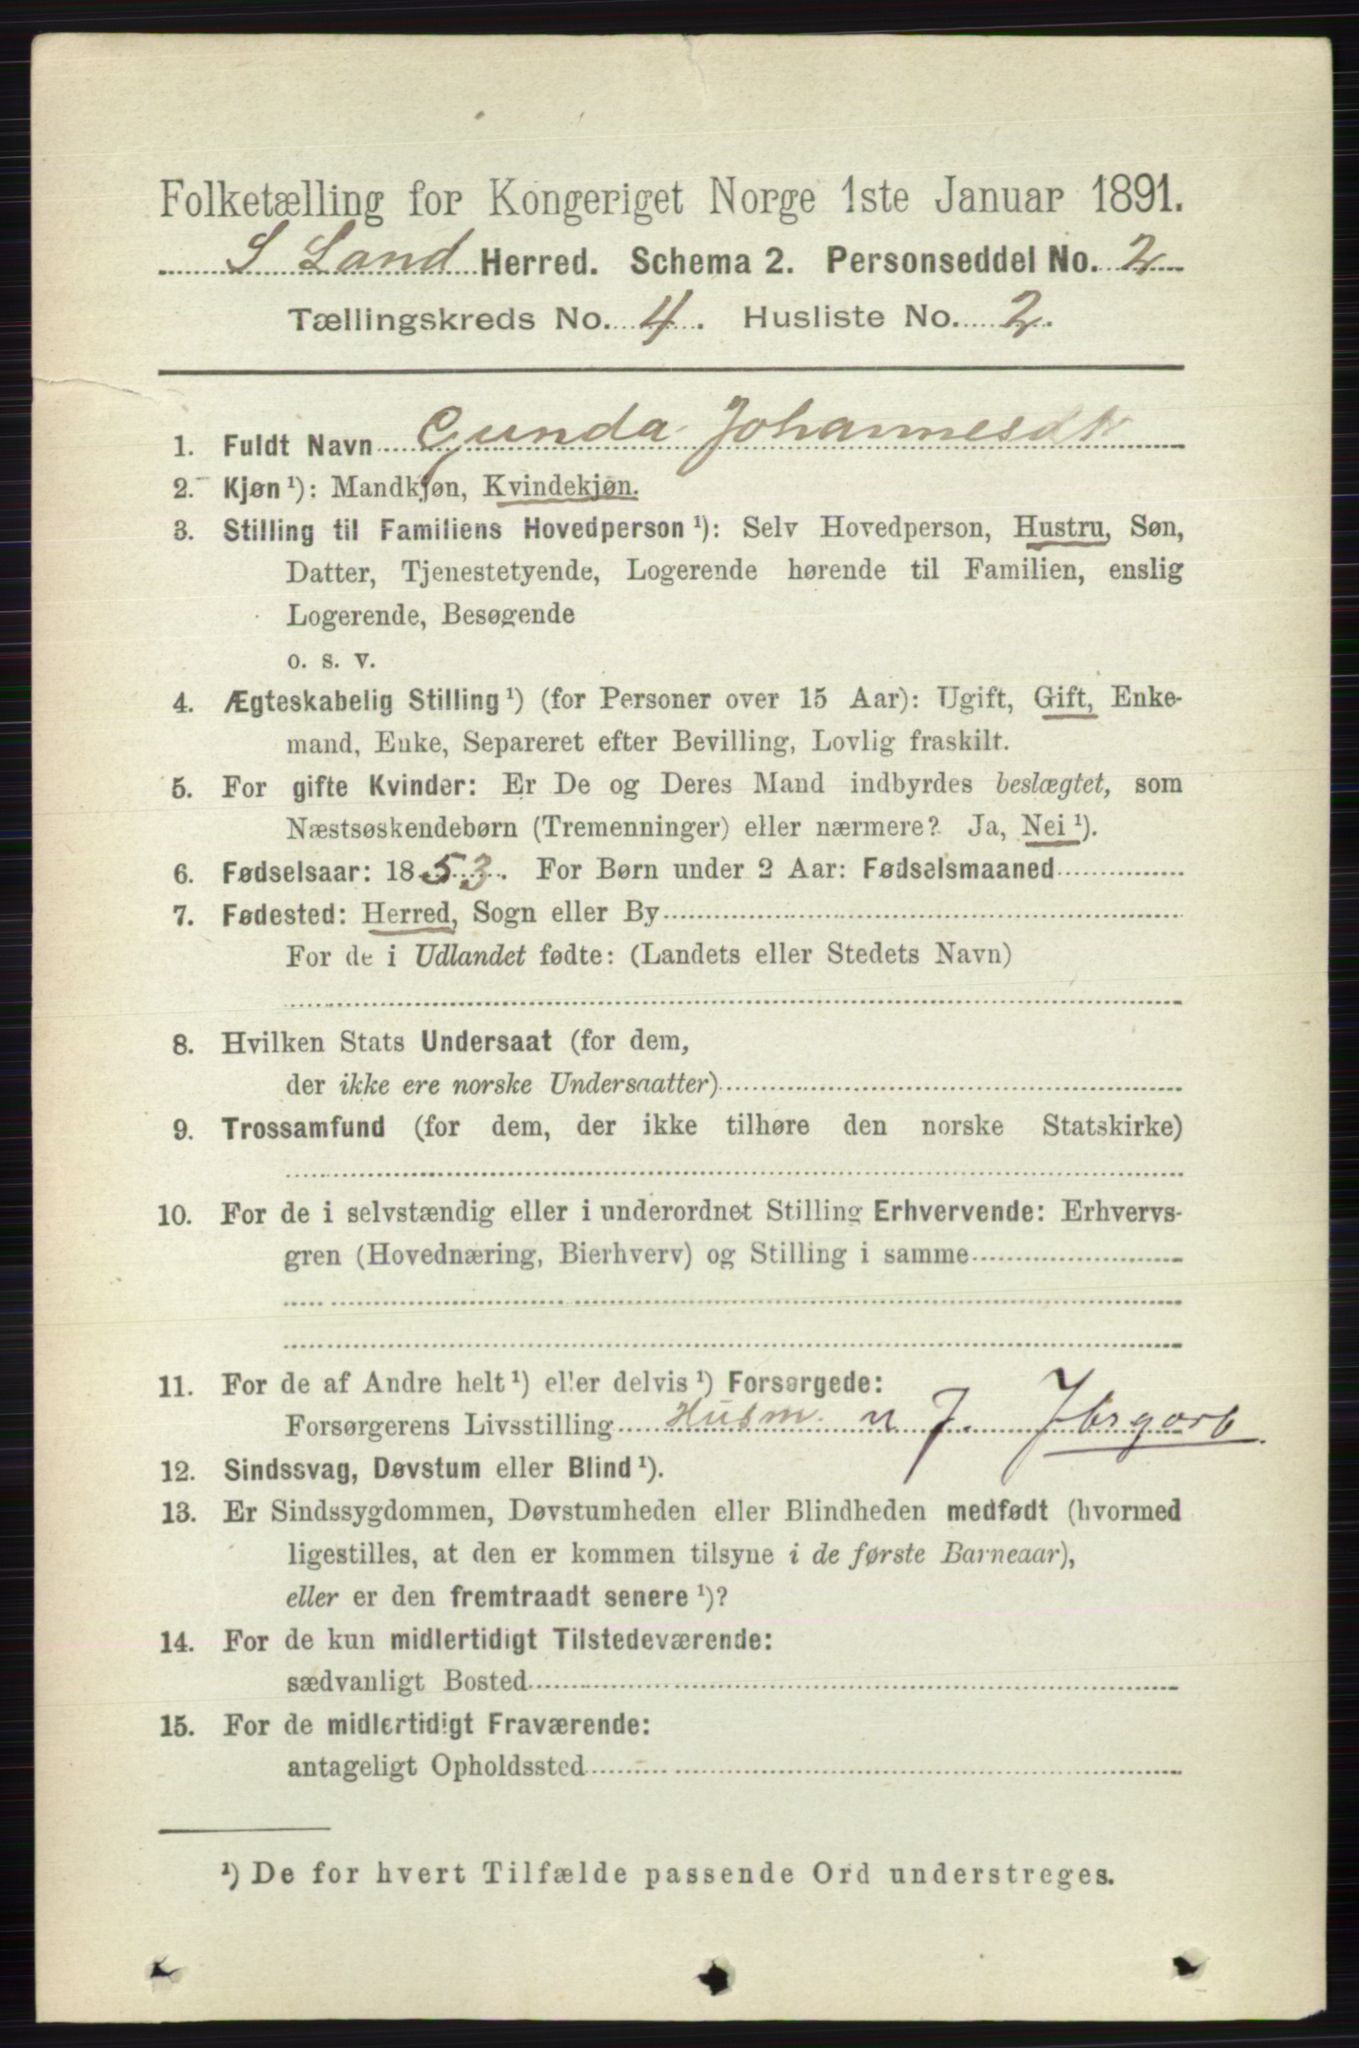 Folketælling for Kongeriget Norge 1ste Januar 1891.
S Land Herred. Schema 2. Personseddel No. 2
Tællingskreds No. 4. Husliste No. 2.
1. Fuldt Navn Gunda Johannesdtr
2. Kjøn ¹): Mandkjøn, Kvindekjøn.
3. Stilling til Familiens Hovedperson ¹): Selv Hovedperson, Hustru, Søn,
Datter, Tjenestetyende, Logerende hørende til Familien, enslig
Logerende, Besøgende
o. s. v.
4. Ægteskabelig Stilling ¹) (for Personer over 15 Aar): Ugift, Gift, Enke-
mand, Enke, Separeret efter Bevilling, Lovlig fraskilt.
5. For gifte Kvinder: Er De og Deres Mand indbyrdes beslægtet, som
Næstsøskendebørn (Tremenninger) eller nærmere? Ja, Nei ¹).
6. Fødselsaar: 1853. For Børn under 2 Aar: Fødselsmaaned
7. Fødested: Herred, Sogn eller By
For de i Udlandet fødte: (Landets eller Stedets Navn)
8. Hvilken Stats Undersaat (for dem,
der ikke ere norske Undersaatter)
9. Trossamfund (for dem, der ikke tilhøre den norske Statskirke)
10. For de i selvstændig eller i underordnet Stilling Erhvervende: Erhvervs-
gren (Hovednæring, Bierhverv) og Stilling i samme
11. For de af Andre helt ¹) eller delvis ¹) Forsørgede:
Forsørgerens Livsstilling Husm. J.
12. Sindssvag, Døvstum eller Blind ¹).
13. Er Sindssygdommen, Døvstumheden eller Blindheden medfødt (hvormed
ligestilles, at den er kommen tilsyne i de første Barneaar),
eller er den fremtraadt senere ¹)?
14. For de kun midlertidigt Tilstedeværende:
sædvanligt Bosted
15. For de midlertidigt Fraværende:
antageligt Opholdssted
¹) De for hvert Tilfælde passende Ord understreges.